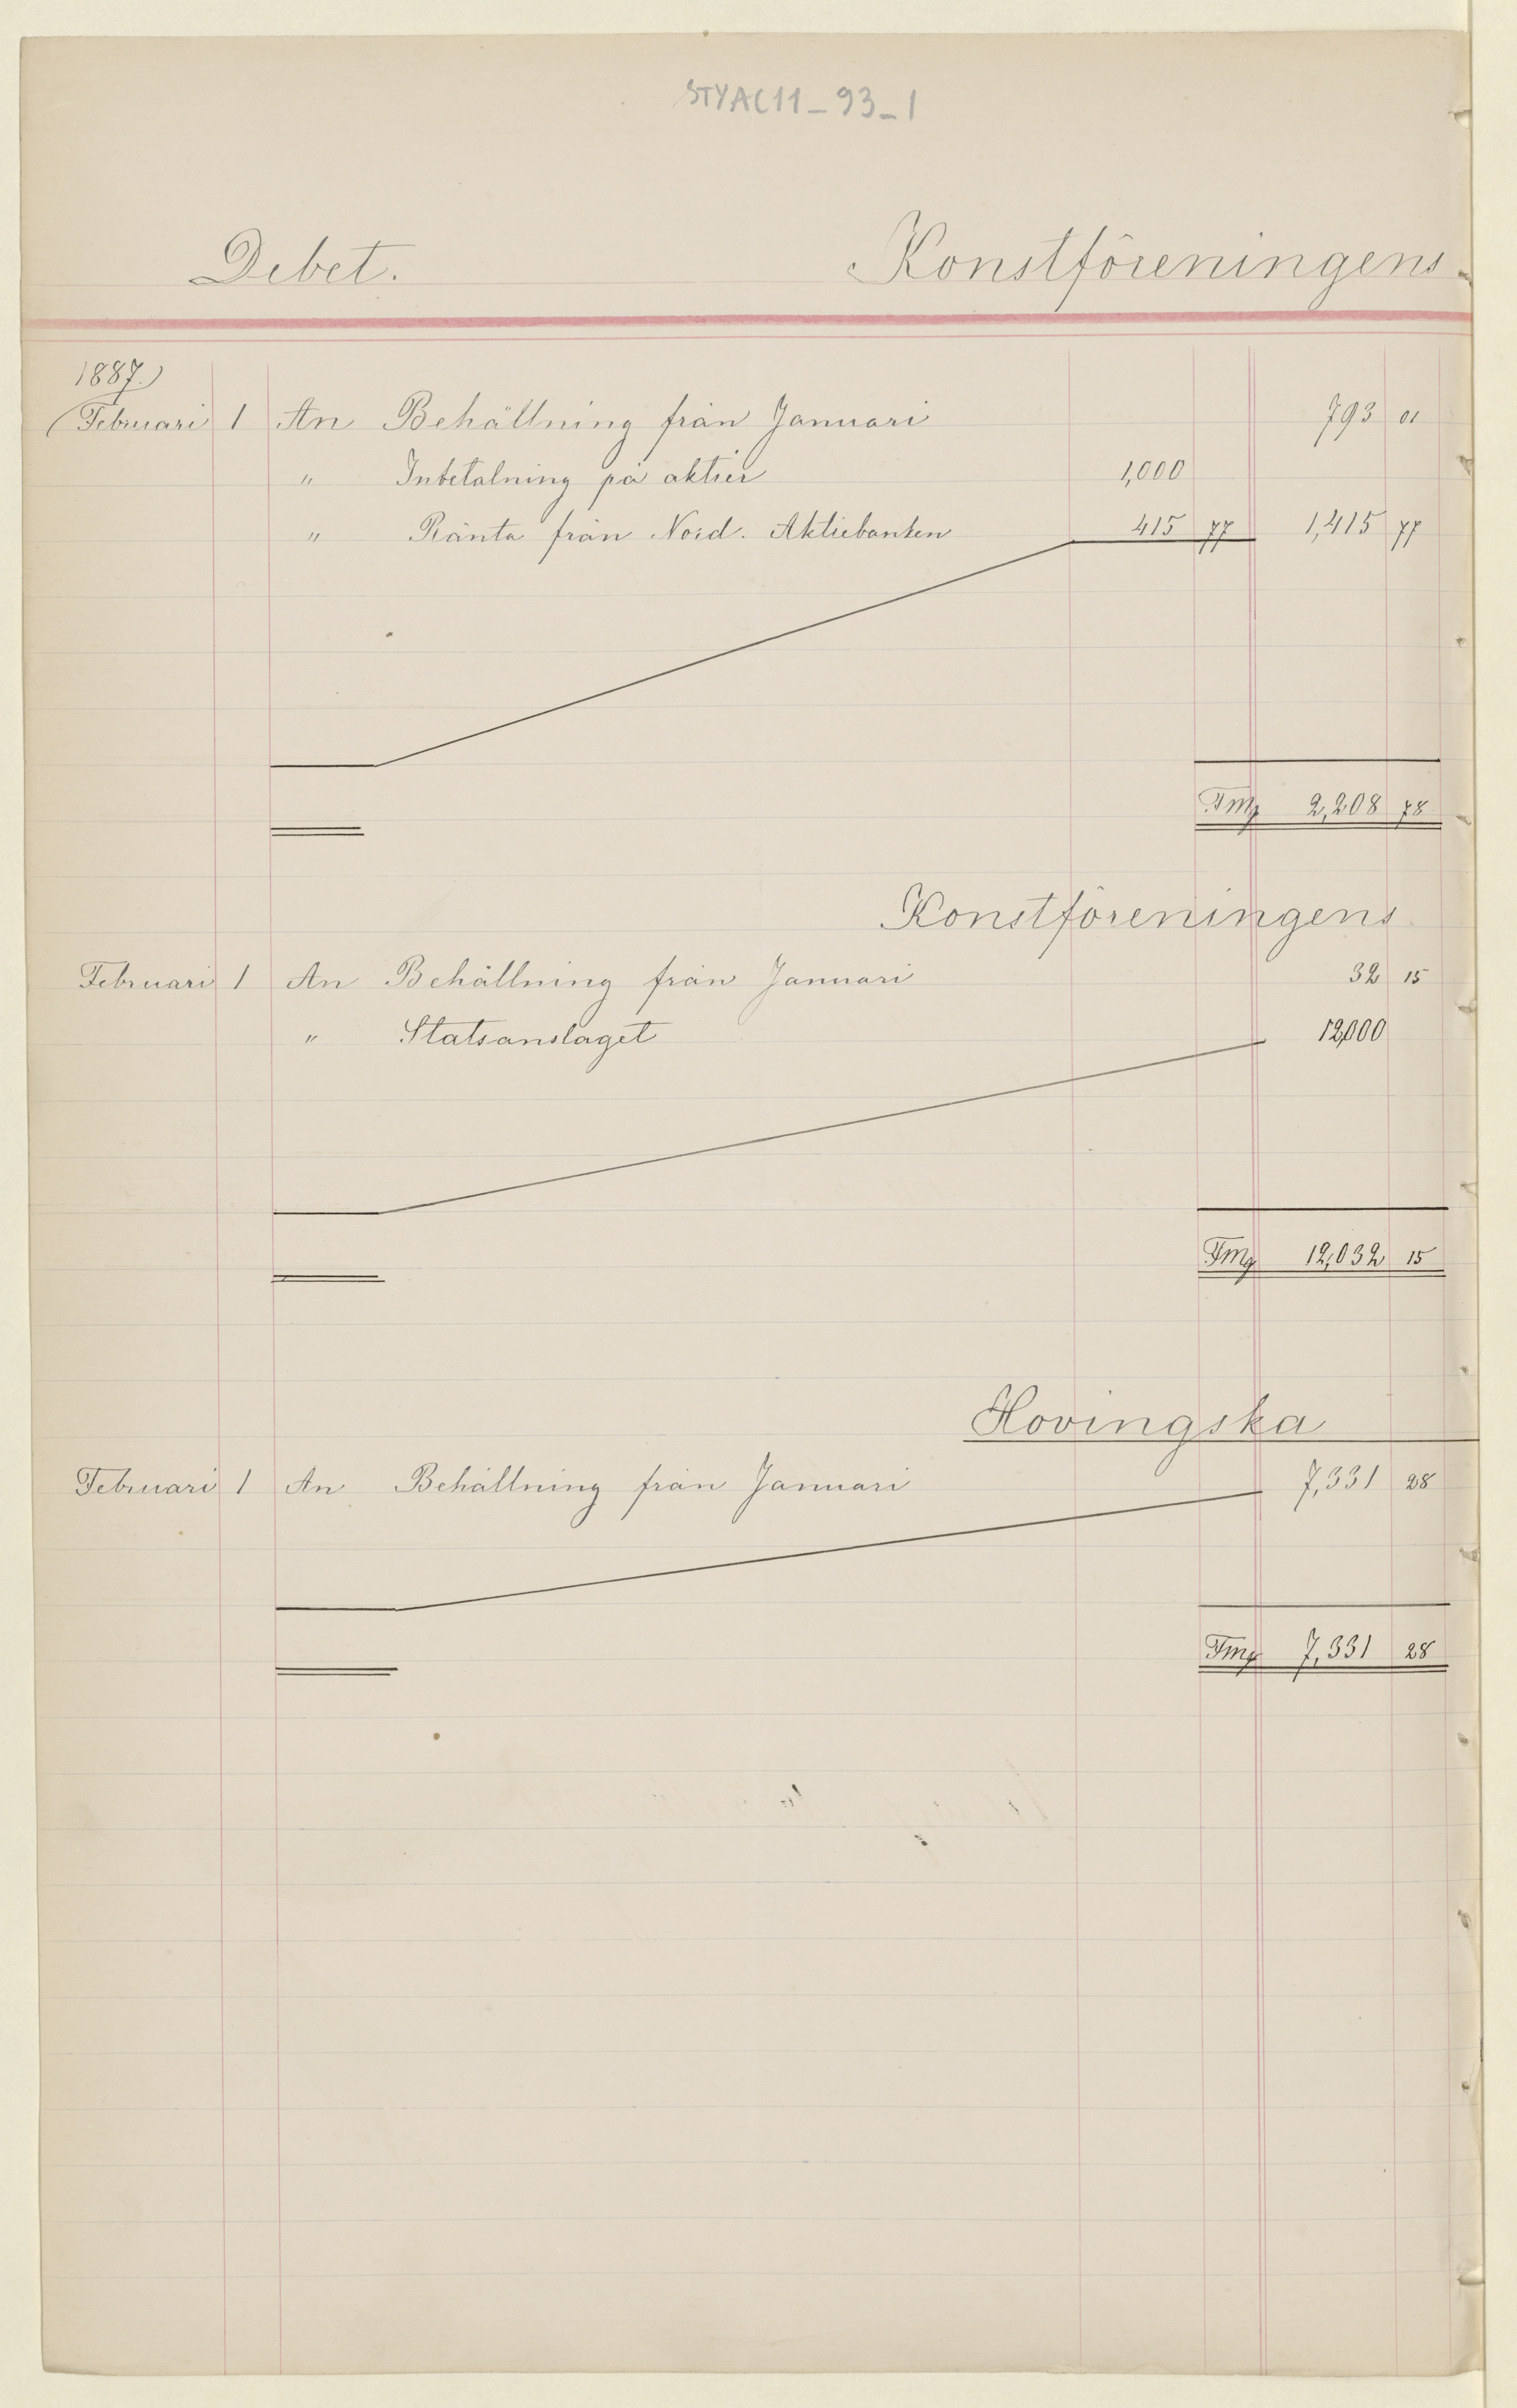 STYAC11_93_1
Debet. Konstföreningens
1887.
Februari 1 An Behållning från Januari 793 01
" Inbetalning på aktier 1,000
" Ränta från Nord. Aktiebanken 415 77 1,415 77
Fmg 2,208 78
Konstföreningens
Februari 1 An Behållning från Januari 32 15
" Statsanslaget 12,000
Fmg 12,032 15
Hovingska
Februari 1 An Behållning från Januari 7,331 28
Fmg 7,331 28